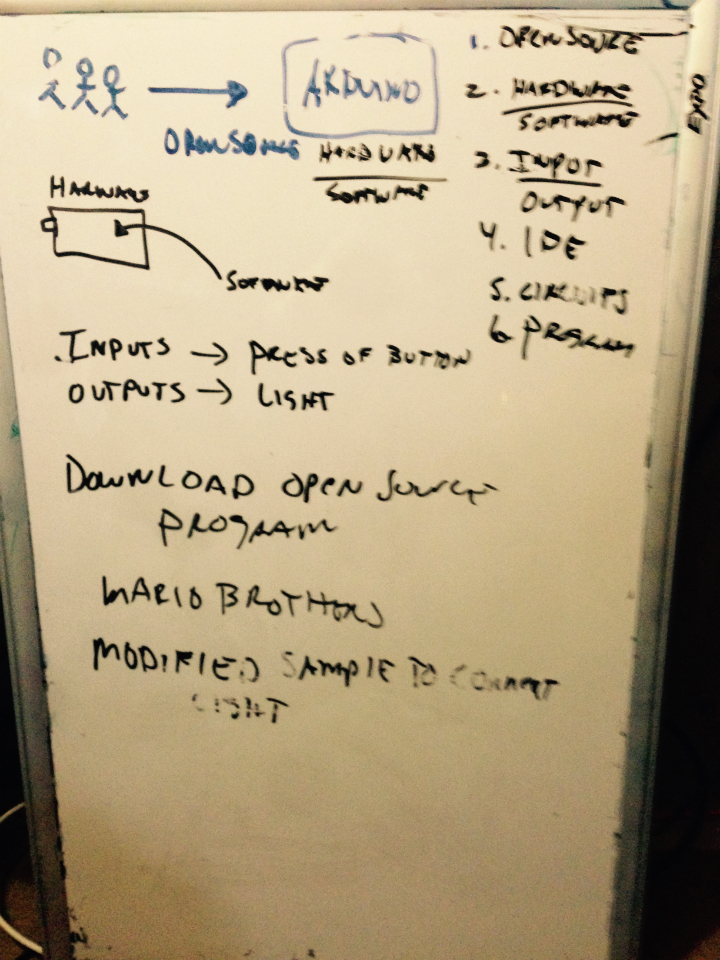 ARDUINO
OPEN SOURCE
HARDWARE
SOFTWARE
1. OPEN SOURCE
2. HARDWARE
SOFTWARE
3. INPUT
OUTPUT
4. IDE
5. CIRCUITS
6 PROGRAM
EXPO
HARWARE
SOFTWARE
. INPUTS → PRESS OF BUTTON
OUTPUTS → LIGHT
DOWNLOAD OPEN SOURCE
PROGRAM
MARIO BROTHERS
MODIFIED SAMPLE TO CONNECT
LIGHT